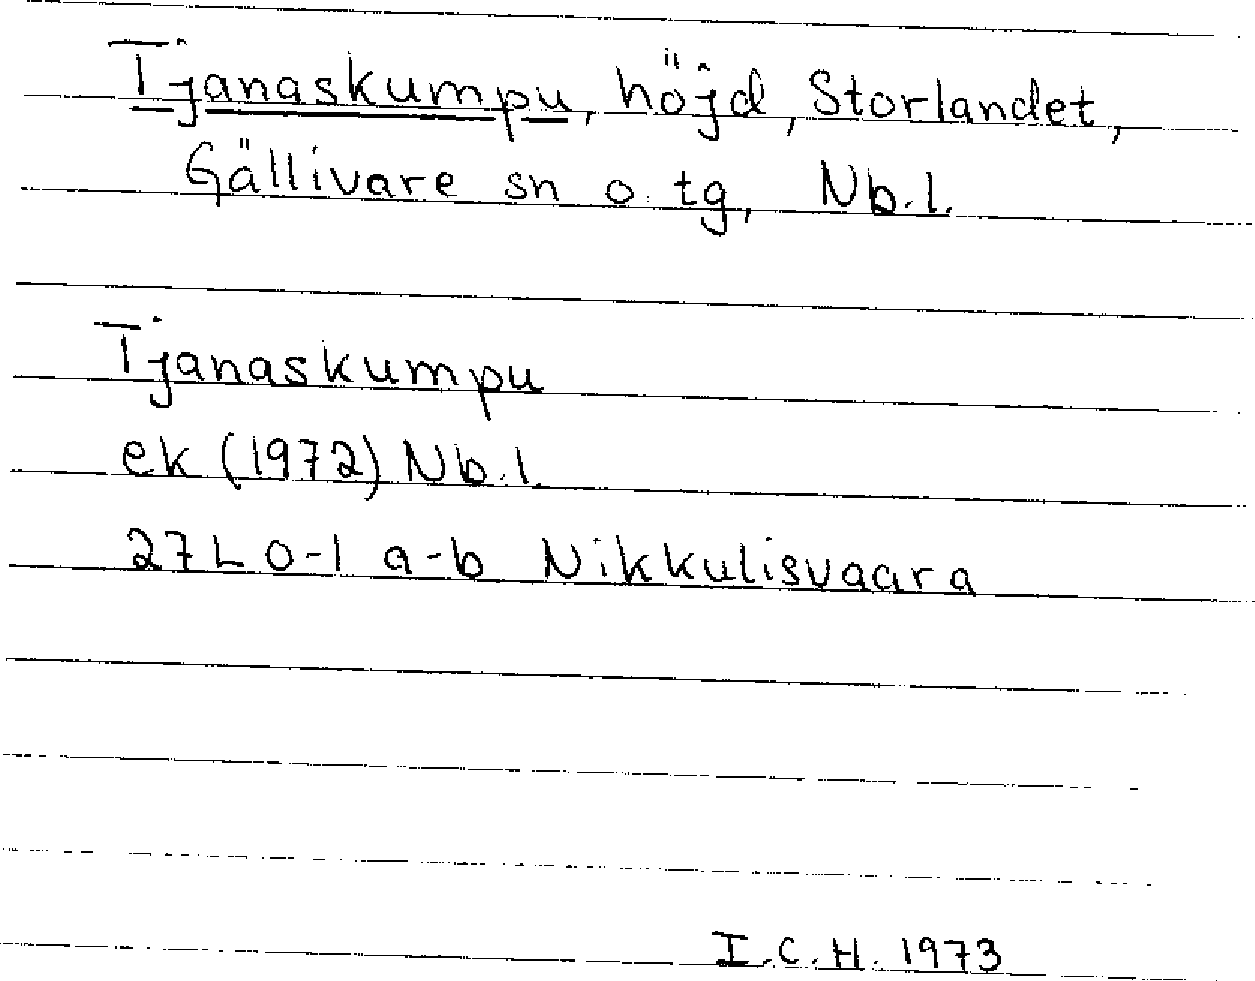 Tjanaskumpu, höjd, Storlandet,
Gällivare sn o. tg, Nb.l.
Tjanaskumpu
ek (1972) Nb.l.
27L 0-1 a-b Nikkulisvaara
I.C.H. 1973